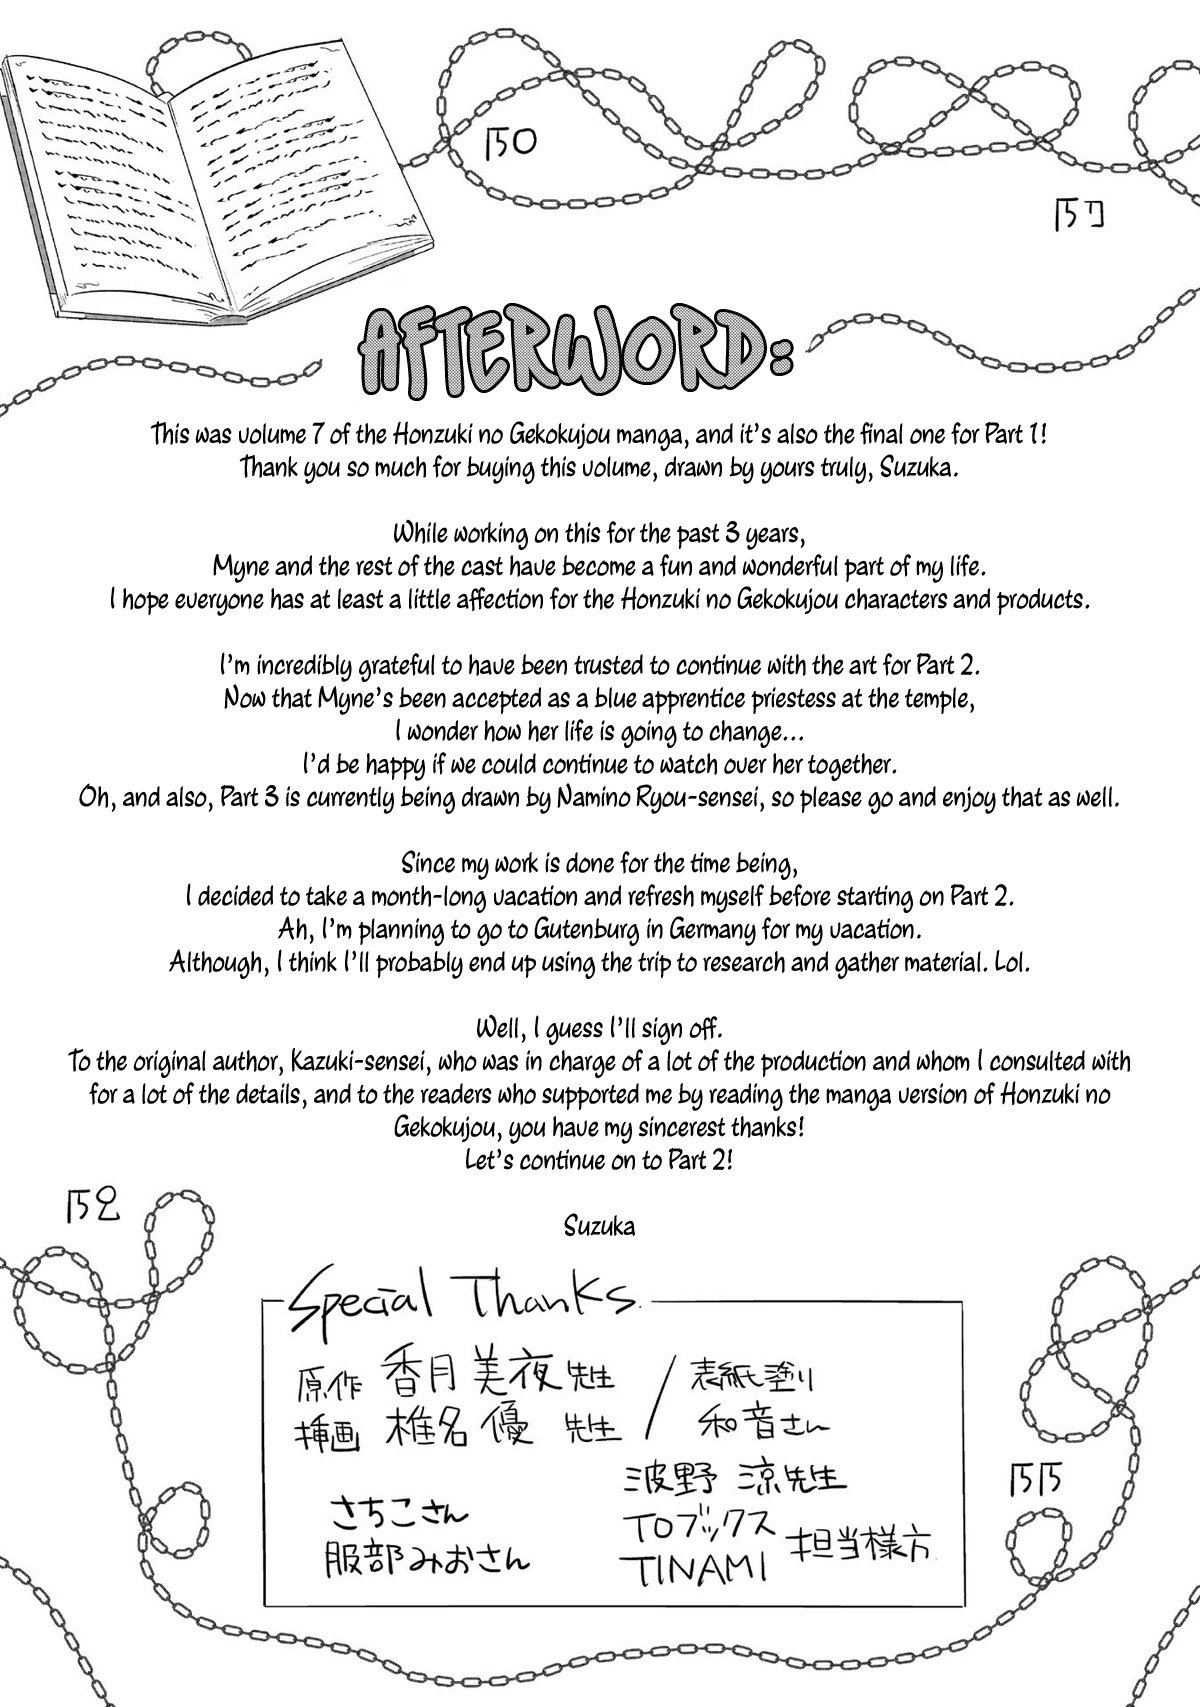 AFTERWORD:
This was volume 7 of the Honzuki no Gekokujou manga, and it's also the final one for Part 1!
Thank you so much for buying this volume, drawn by yours truly, Suzuka.
While working on this for the past 3 years,
Myne and the rest of the cast have become a fun and wonderful part of my life.
I hope everyone has at least a little affection for the Honzuki no Gekokujou characters and products.
I'm incredibly grateful to have been trusted to continue with the art for Part 2.
Now that Myne's been accepted as a blue apprentice priestess at the temple,
I wonder how her life is going to change...
I'd be happy if we could continue to watch over her together.
Oh, and also, Part 3 is currently being drawn by Namino Ryou-sensei, so please go and enjoy that as well.
Since my work is done for the time being,
I decided to take a month-long vacation and refresh myself before starting on Part 2.
Ah, I'm planning to go to Gutenburg in Germany for my vacation.
Although, I think I'll probably end up using the trip to research and gather material. Lol.
Well, I guess I'll sign off.
To the original author, Kazuki-sensei, who was in charge of a lot of the production and whom I consulted with
for a lot of the details, and to the readers who supported me by reading the manga version of Honzuki no
Gekokujou, you have my sincerest thanks!
Let's continue on to Part 2!
Suzuka
Special Thanks
原作 香月美夜 先生 / 表紙塗り
挿画 椎名優 先生 / 和音さん
さちこさん
服部みおさん
波野 涼先生
TOブックス
TINAMI 担当様方